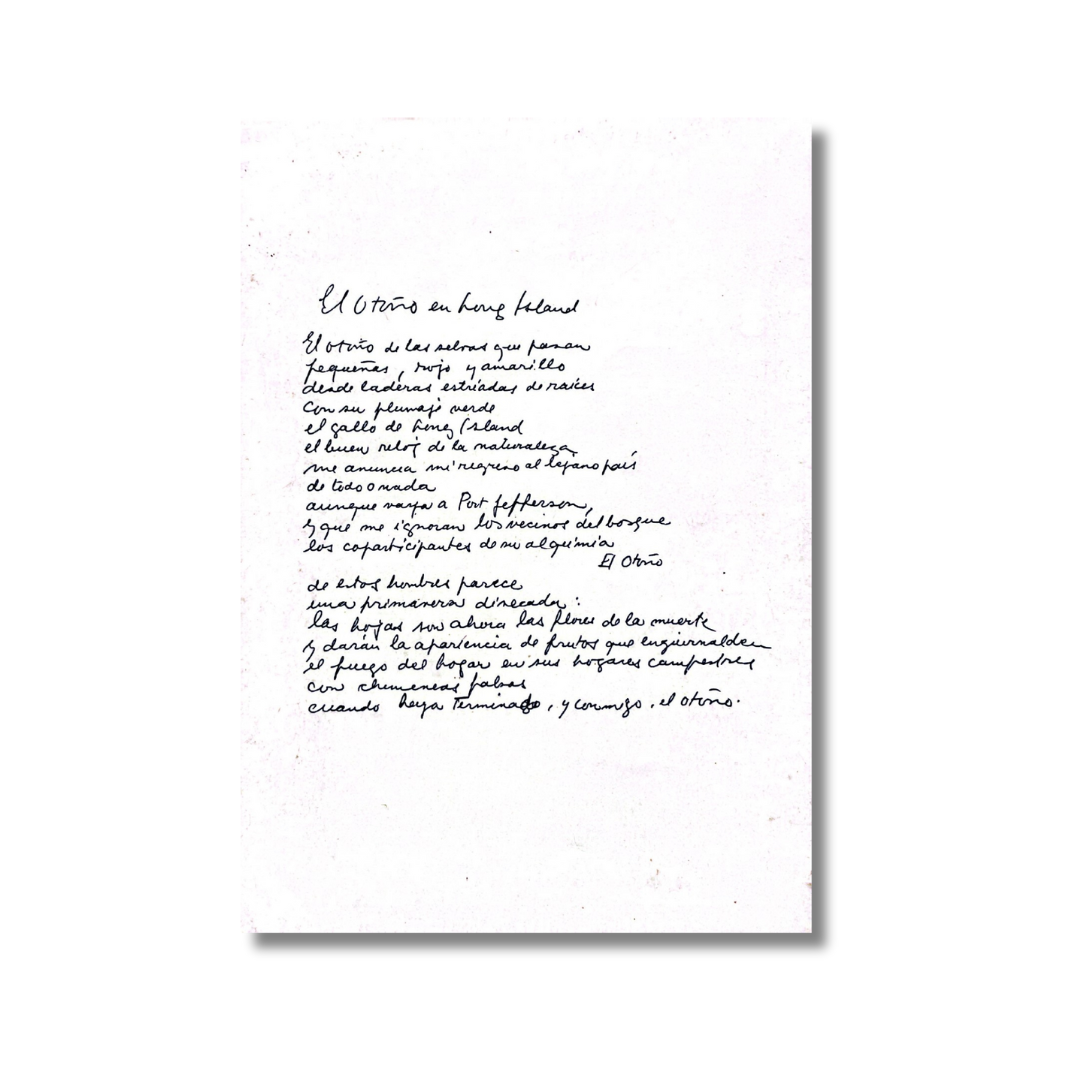 El Otoño en Long Island
El otoño de las selvas que pasan
pequeñas, rojo y amarillo
desde laderas estriadas de raíces
con su plumaje verde
el gallo de Long Island
el buen reloj de la naturaleza
me anuncia mi regreso al lejano país
de todo o nada
aunque vaya a Port Jefferson,
y que me ignoran los vecinos del bosque
los coparticipantes de su alquimia
El Otoño
de estos hombres parece
una primavera disecada:
las hojas son ahora las flores de la muerte
y darán la apariencia de frutos que enguirnalden
el fuego del hogar en sus hogares campestres
con chimeneas falsas
cuando haya terminado, y conmigo, el otoño.